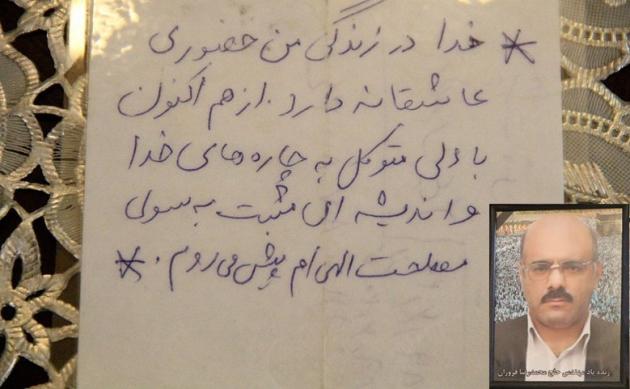 * خدا در زندگی من حضوری
عاشقانه دارد. از هم اکنون
با دلی متوکل به چاره های خدا
و اندیشه ای مثبت به سوی
مصلحت الهی ام پیش می روم. *
زنده یاد مهندس حاج محمدرضا فروزان